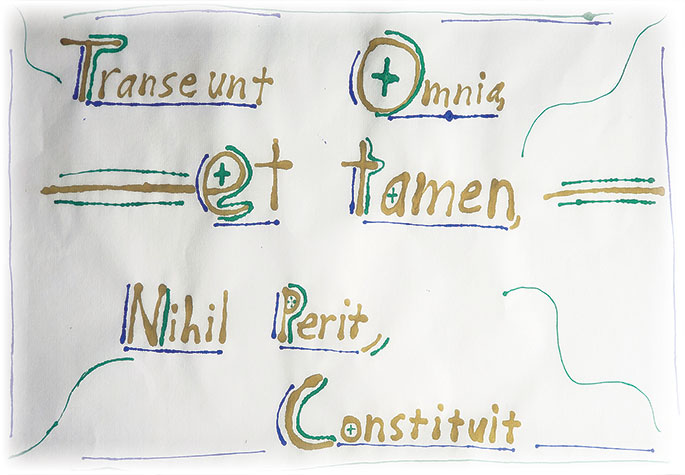 Transeunt Omnia,
et tamen,
Nihil Perit,,
Constituit